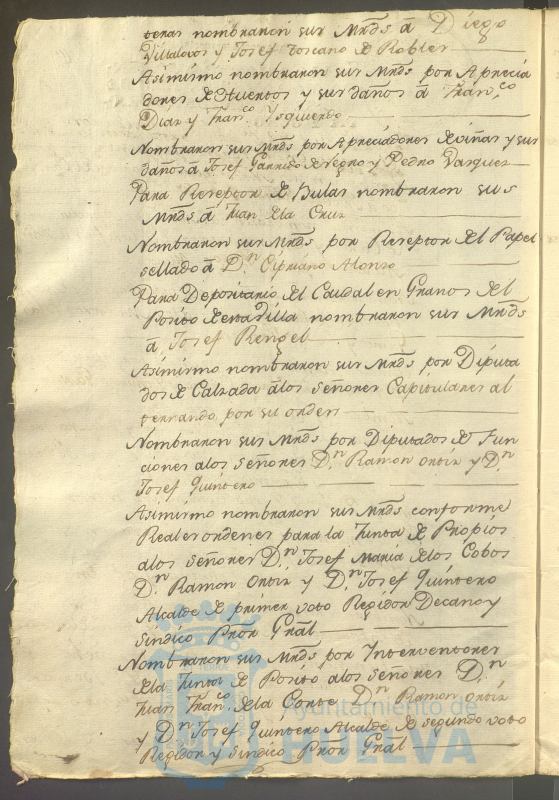 teras nombraron sus Mrds á Diego
Villalovos y Josef Toscano de Robles
Asimismo nombraron sus Mrds por Aprecia
dores de Huertos y sus daños á Fran,co
Diaz y Fran.co Ysquierdo
Nombraron sus Mrds por Apreciadores de viñas y sus
daños á Josef Garrido de Negro y Pedro Vasquez
Para Reseptor de Bulas nombraron sus
Mrds á Juan de la Cruz
Nombraron sus Mrds por Reseptor del Papel
sellado á D.n Cipriano Alonso
Para Depositario del Caudal en Granos del
Posito de esta Villa nombraron sus Mrds
á Josef Rengel
Asimismo nombraron sus Mrds por Diputa
dos de Calzada á los Señores Capitulares al
ternando por su orden
Nombraron sus Mrds por Diputados de Fun
ciones a los Señores D.n Ramon Ortiz y D.n
Josef Quintero
Asimismo nombraron sus Mrds conforme
Reales ordenes para la Junta de Propios
a los Señores D.n Josef Maria de los Cobos
D.n Ramon Ortiz y D.n Josef Quintero
Alcalde de primer voto Regidor Decano y
Sindico Pror Gral
Nombraron sus Mrds por Interventores
de la Junta de Posito a los Señores D.n
Juan Fran.co de la Corte D.n Ramon Ortiz
y D.n Josef Quintero Alcalde de segundo voto
Regidor y Sindico Pror Gral
Ayuntamiento de
HUELVA